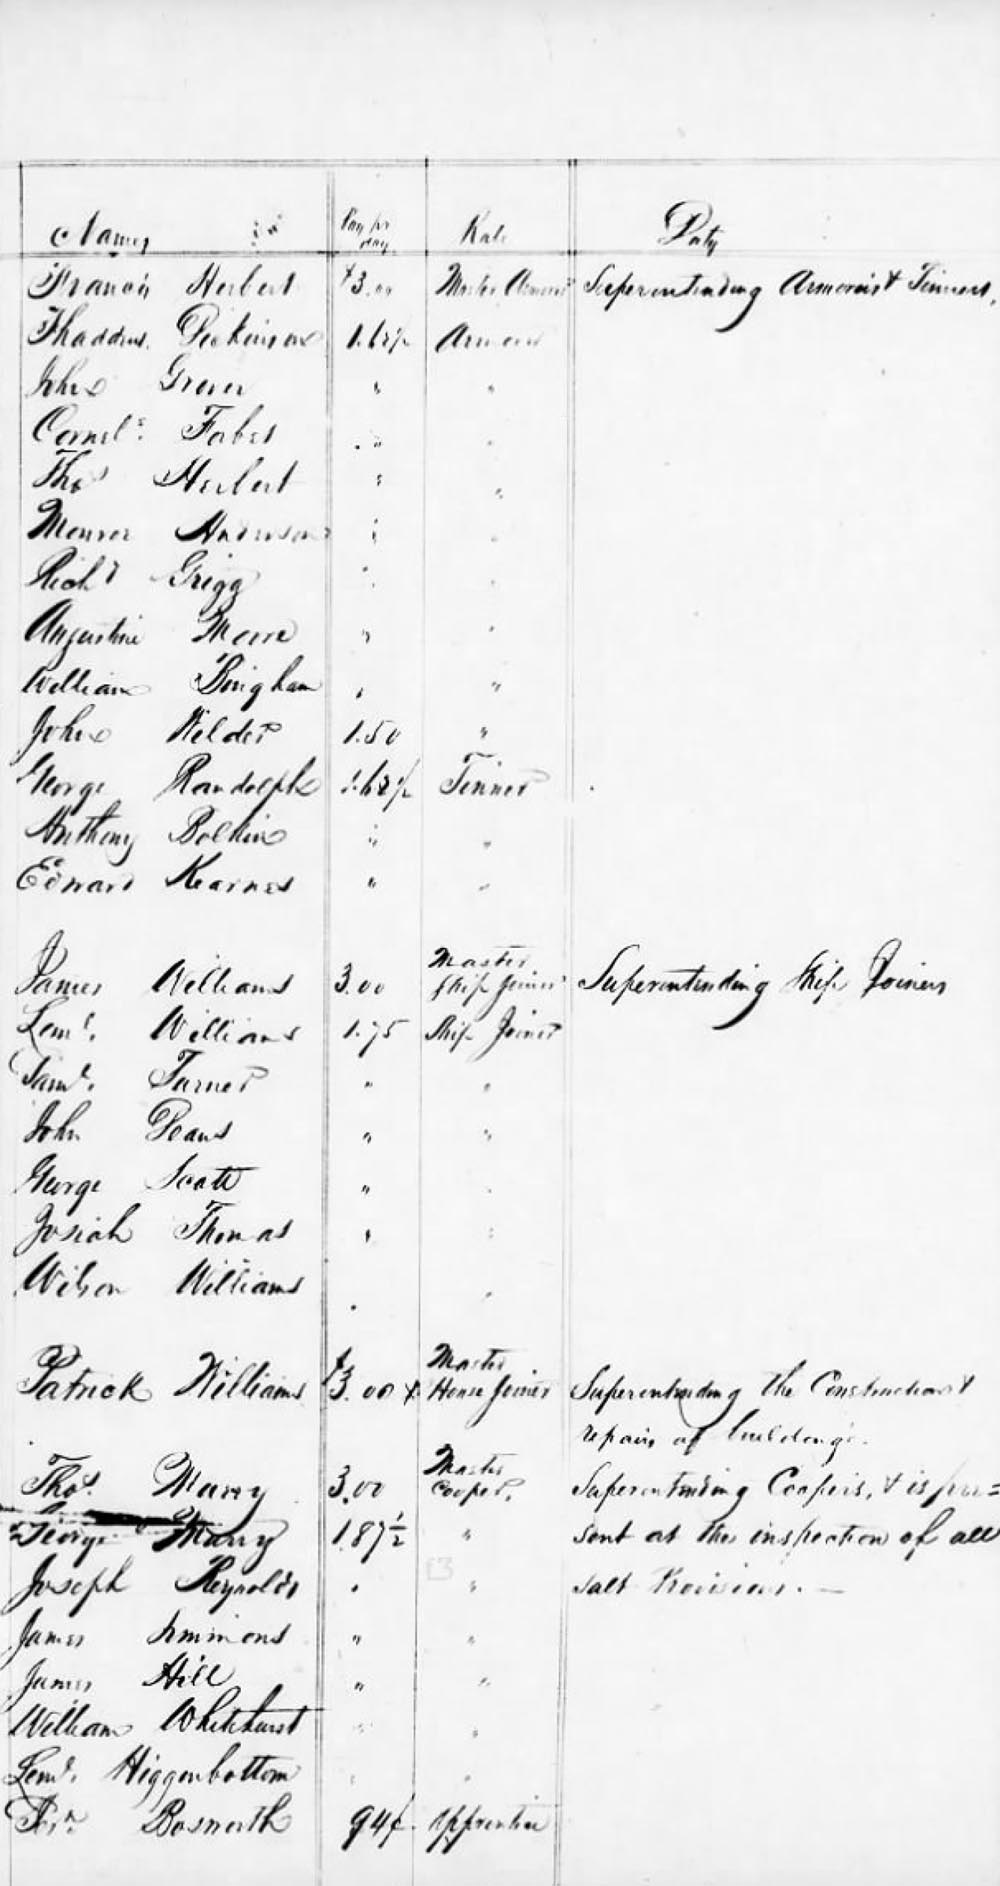 Names Pay pr day Rate Duty
Francis Herbert $3.00 Master Armorer Superintending Armorers & Tinners,
Thaddeus Dickinson 1.62½ Armorer
John Grover " "
Cornel.s Forbes " "
Tho.s Herbert " "
Monroe Anderson " "
Rich.d Grigg " "
Augustine Moore " "
William Bingham " "
John Wilder 1.50 "
George Randolph 1.62½ Tinner
Anthony Bolkin " "
Edward Kearnes " "
James Williams 3.00 Master Ship Joiner Superintending Ship Joiners
Lem.l Williams 1.75 Ship Joiner
Sam.l Turner " "
John Deans " "
George Scott " "
Josiah Thomas " "
Wilson Williams " "
Patrick Williams $3.00 Master House Joiner Superintending the Construction &
repairs of buildings.
Tho.s Murry 3.00 Master Cooper, Superintending Coopers, & is pre=
George Murry 1.87½ " sent at the inspection of all
Joseph Reynolds " " salt Provisions. —
James Simmons " "
James Hill " "
William Whitehurst " "
Lem.l Higgenbottom " "
Bosworth 94¢ apprentice